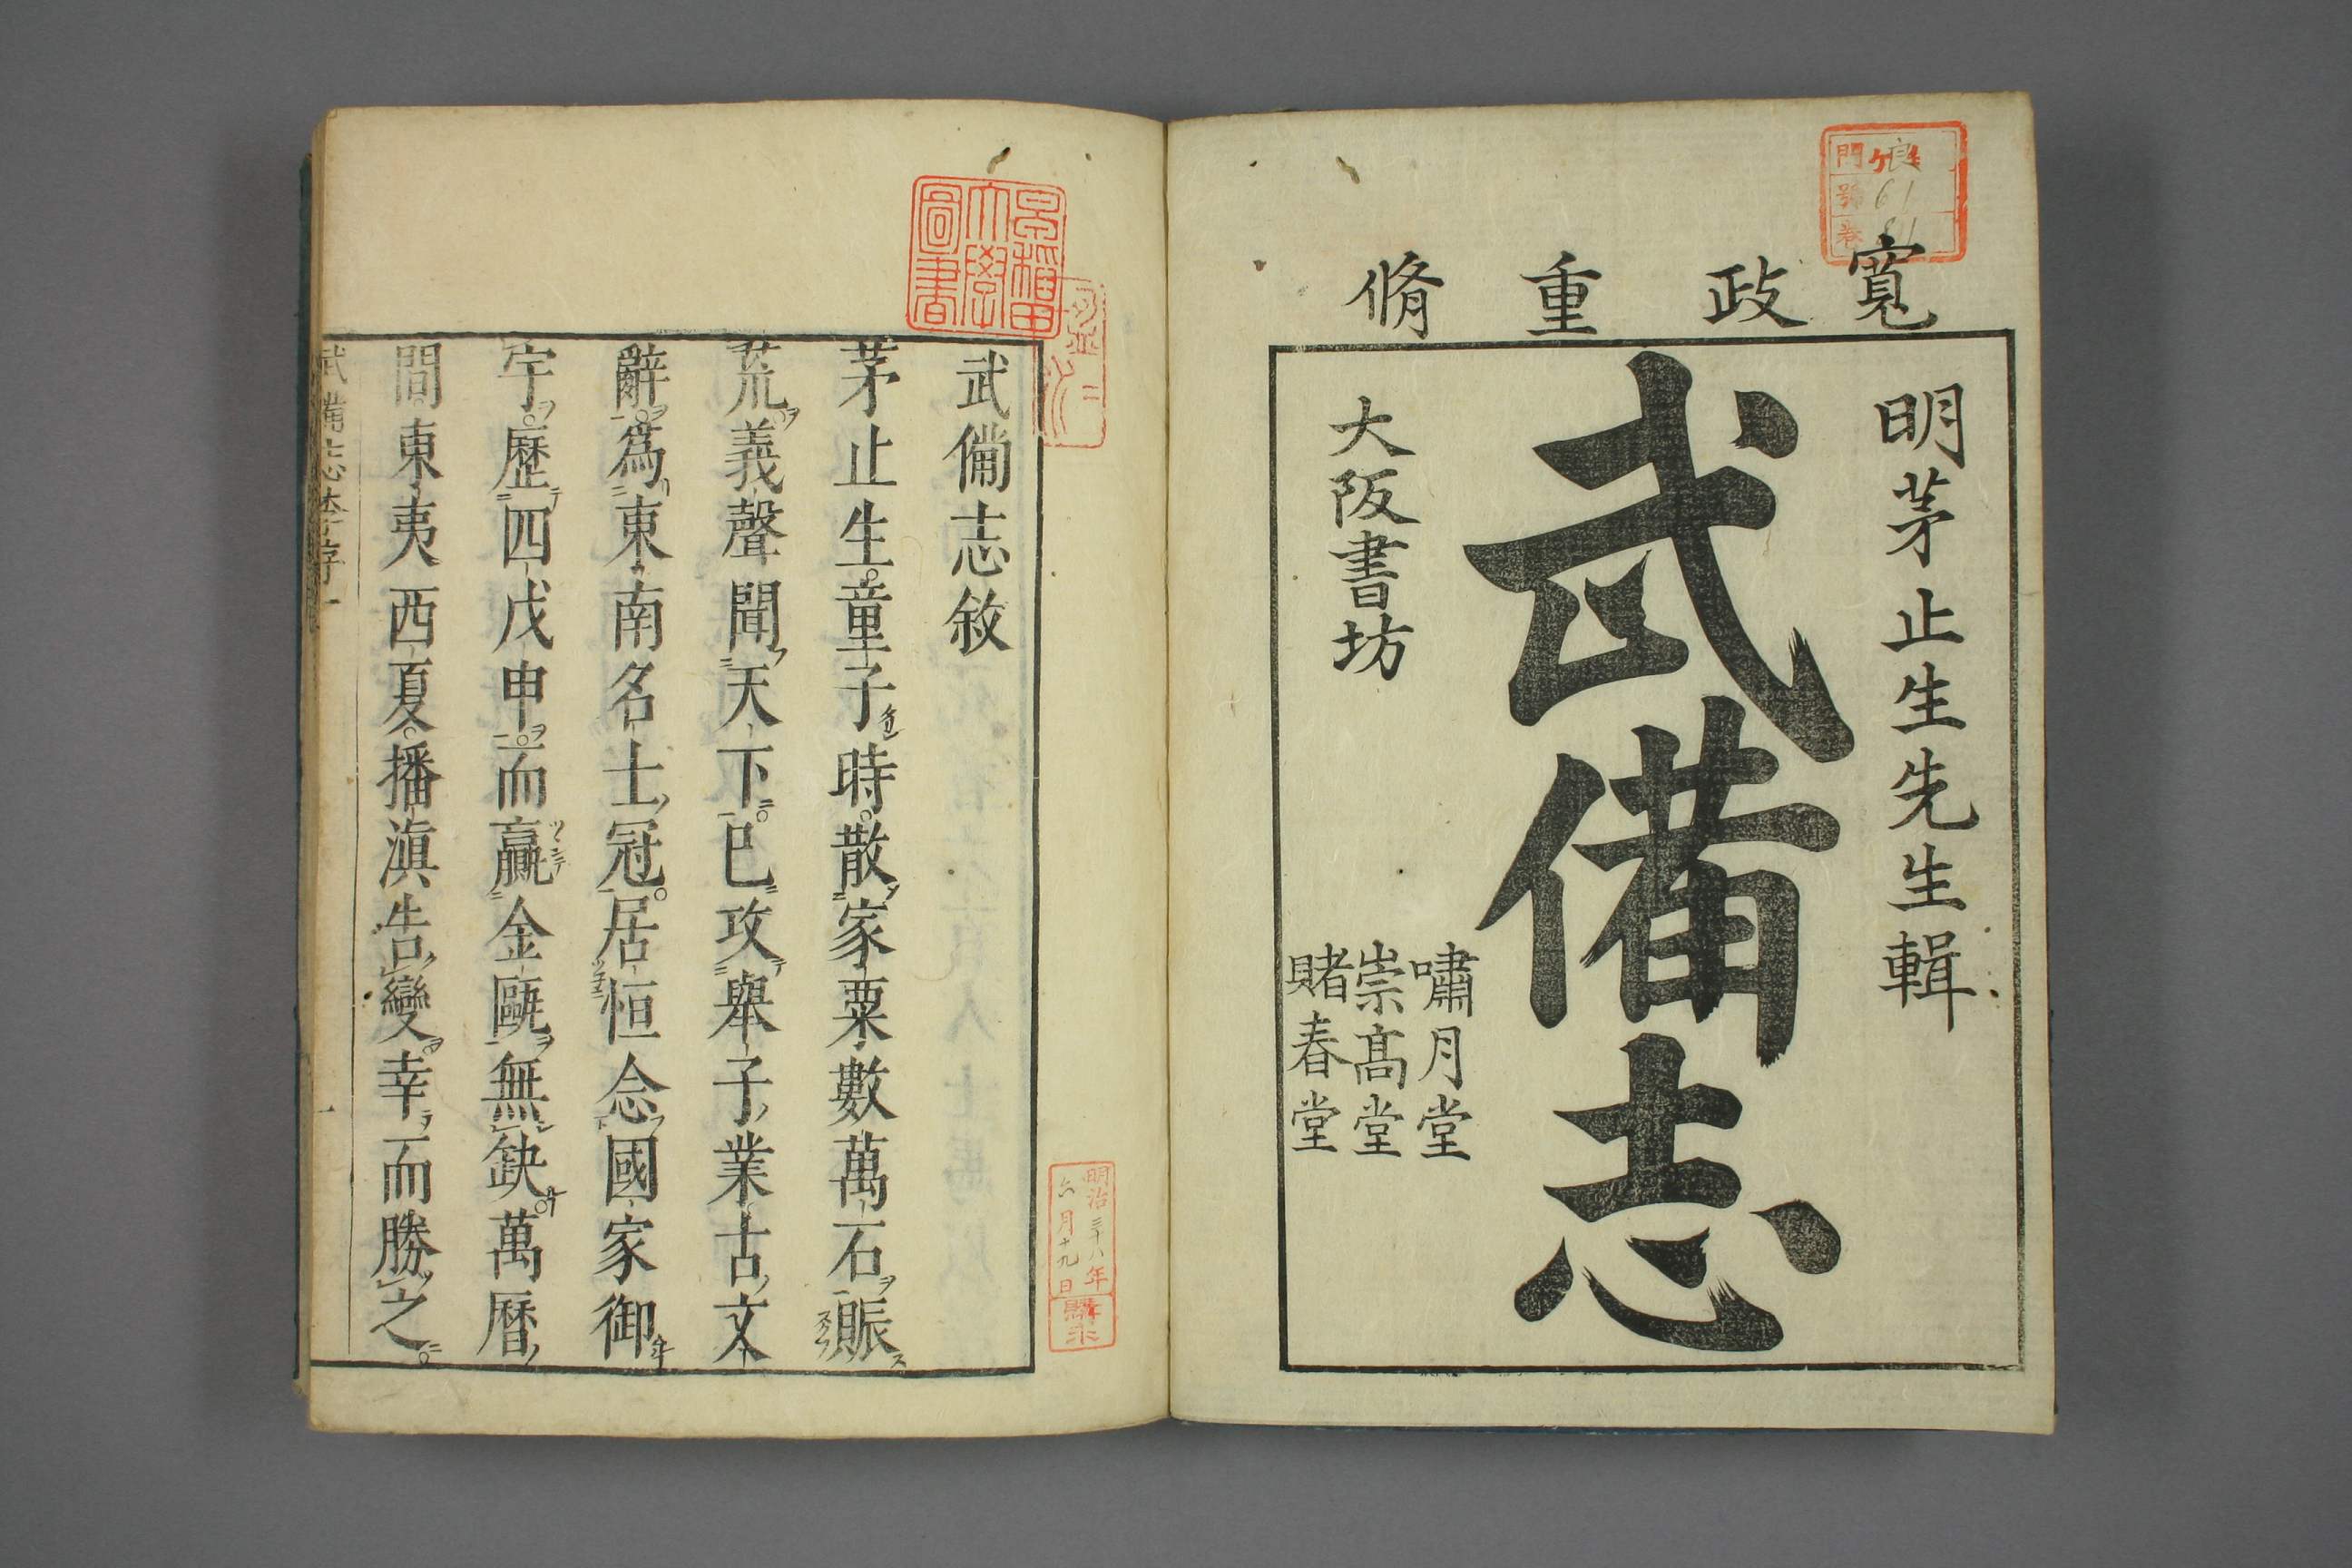 寬政重脩
明茅止生先生輯
武備志
大阪書坊
嘯月堂
崇髙堂
賭春堂
早稲田
大學
圖書
明治三十八年
六月十九日
購求
武備志敘
茅止生。童子時。散家粟數萬石賑
荒義聲聞天下。已攻舉子業古文
辭。爲東南名士冠。居恒念國家御
宇。歷四戊申。而贏金甌無缺。萬曆
間。東夷西夏。播滇告變。幸而勝之。